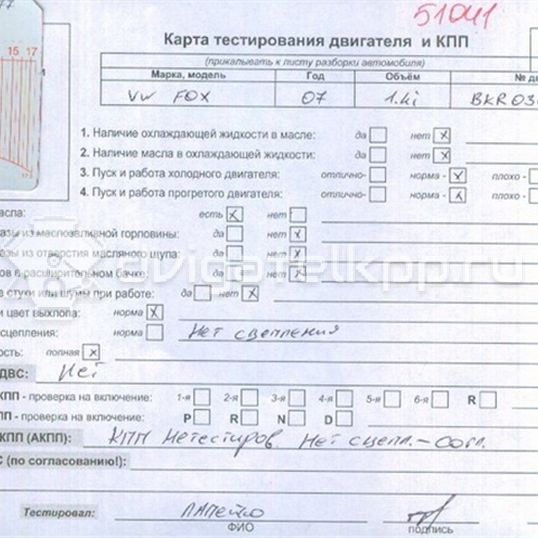 51041
77
15 17
Карта тестирования двигателя и КПП
(прикалывать к листу разборки автомобиля)
Марка, модель Год Объём № дв
VW FOX 07 1.4i BKR03
1. Наличие охлаждающей жидкости в масле: да нет
2. Наличие масла в охлаждающей жидкости: да нет
3. Пуск и работа холодного двигателя: отлично- норма - плохо -
4. Пуск и работа прогретого двигателя: отлично- норма - плохо -
асла: есть нет
азы из маслозаливной горловины: да нет
азы из отверстия масляного щупа: да нет
ов в расширительном бачке: да нет
е стуки или шумы при работе: да нет
и цвет выхлопа: норма
сцепления: норма Нет сцепления
ость: полная
ДВС: Нет
КПП - проверка на включение: 1-я 2-я 3-я 4-я 5-я 6-я R
КПП - проверка на включение: P R N D
КПП (АКПП): КПП Нетестиров. Нет сцепл.-согл.
С (по согласованию!):
Тестировал: Лапейко
ФИО подпись
avigatelkpp.ru